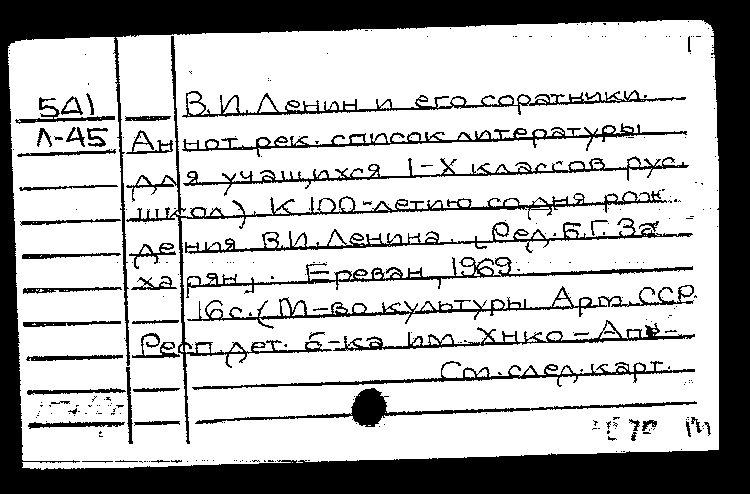 541 В.И. Ленин и его соратники.
Л-45 Аннот. рек. список литературы
для учащихся I-X классов рус.
школ). К 100-летию со дня рож
дения В.И. Ленина. [Ред. Б.Г. За
харян]. Ереван, 1969.
16с. (М-во культуры Арм.ССР.
Респ. дет. б-ка им. Хнко-Апе-
См. след. карт.
70